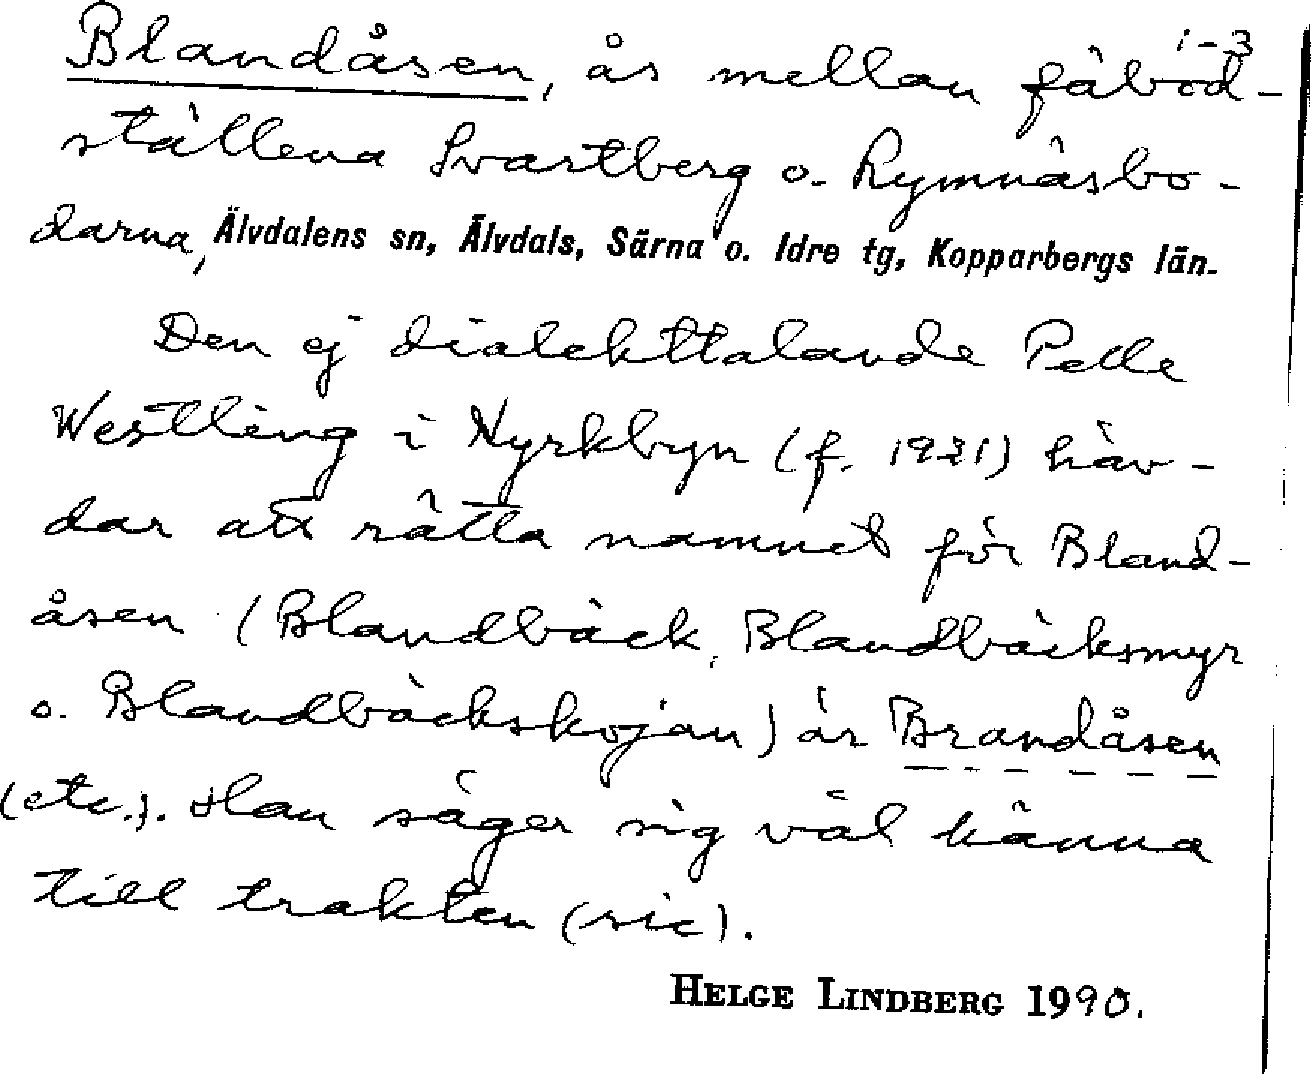 1-3
Blandåsen, ås mellan fäbod-
ställena Svartberg o. Rymnäsbo-
darna, Älvdalens sn, Älvdals, Särna o. Idre tg, Kopparbergs län.
Den ej dialekttalande Pelle
Westling i Nyrkbyn (f. 1921) häv-
dar att rätta namnet för Bland-
åsen (Blandbäck, Blandbäcksmyr
o. Blandbäckskojan) är Brandåsen
(etc.). Han säger sig väl känna
till trakten (sic).
HELGE LINDBERG 1990.